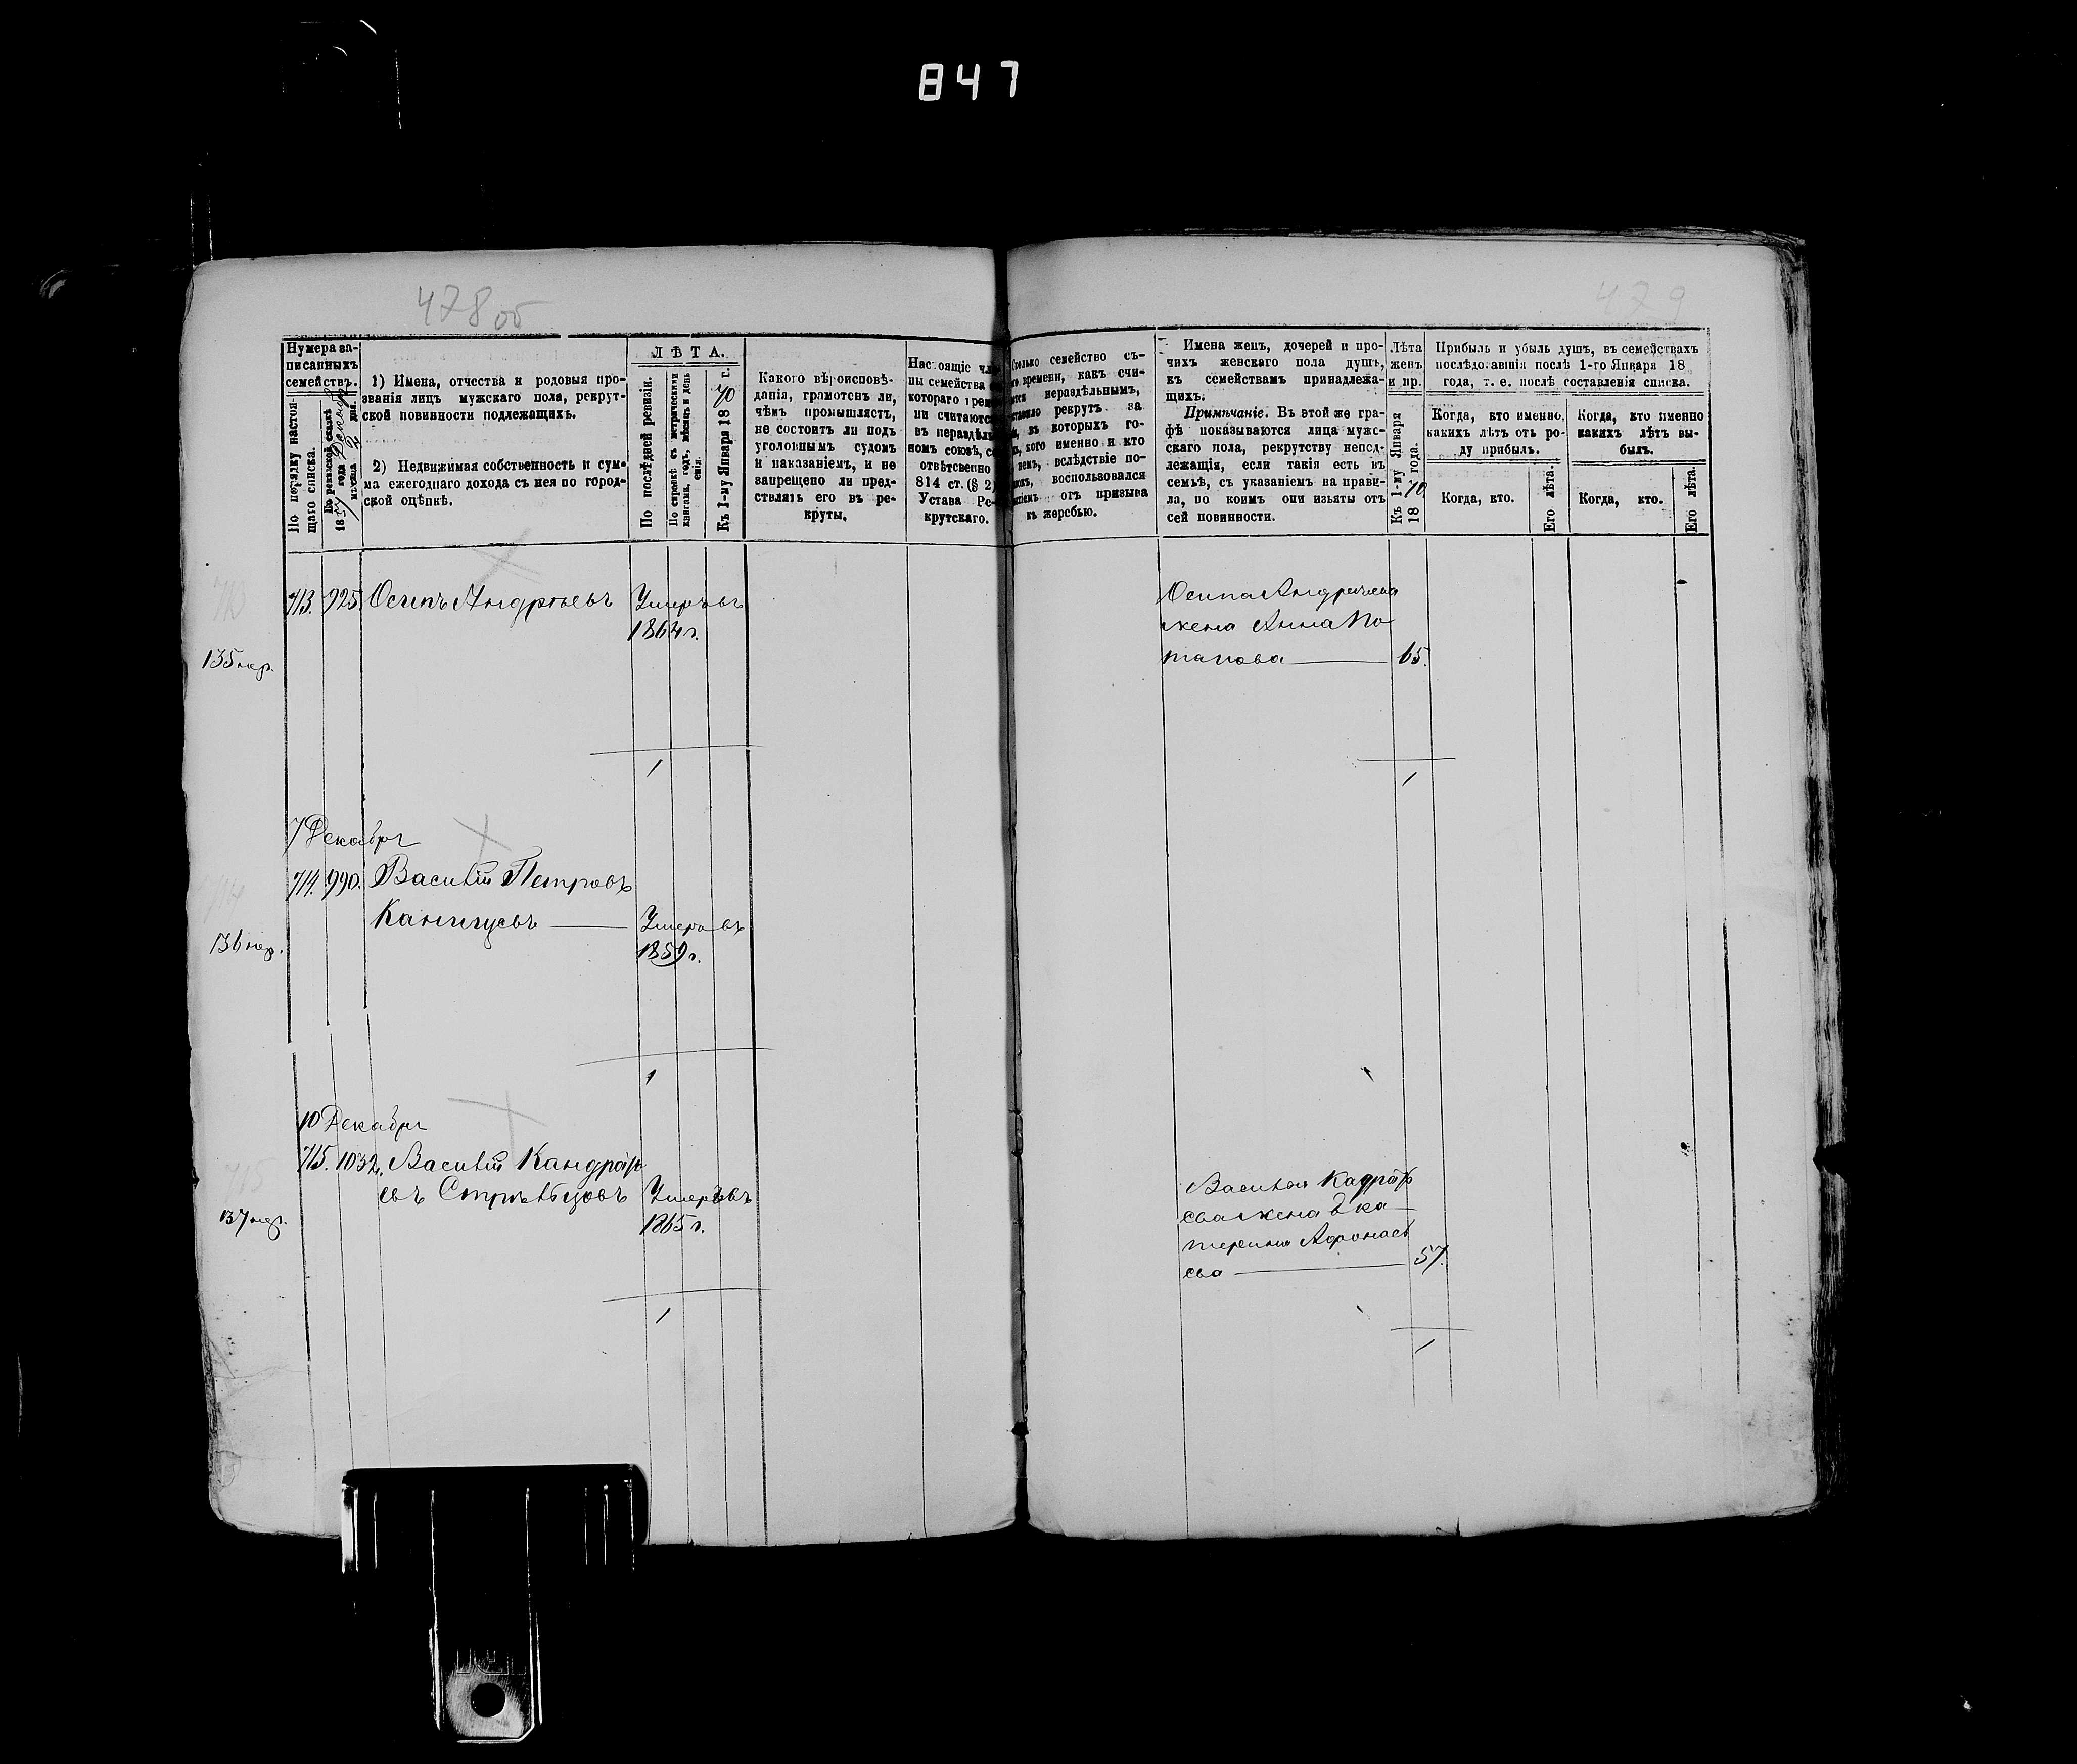 847
478 об
479
Нумера за-
писанныхъ
семействъ.
По порядку настоя-
щаго списка.
По ревизской сказкѣ
18 года
мѣсяца дня.
1) Имена, отчества и родовыя про-
званія лицъ мужскаго пола, рекрут-
ской повинности подлежащихъ.
2) Недвижимая собственность и сум-
ма ежегоднаго дохода съ нея по город-
ской оцѣнкѣ.
ЛѢТА.
По послѣдней ревизіи.
По справкѣ съ метрическими
книгами, годъ, мѣсяцъ и день
Къ 1-му Января 1870 г.
Какого вѣроисповѣ-
данія, грамотенъ ли,
чѣмъ промышляетъ,
не состоитъ ли подъ
уголовнымъ судомъ
и наказаніемъ, и не
запрещено ли пред-
ствлять его въ ре-
круты.
Настоящіе
ны семейства
котораго
ни считаются
въ нераздѣль-
номъ союзѣ,
отвѣтсвенно
814 ст. (§ 2)
Устава Ре-
крутскаго.
семейство съ-
времени, какъ счи-
нераздѣльнымъ,
рекрутъ за
въ которыхъ го-
кого именно и кто
вслѣдствіе по-
воспользовался
отъ призыва
къ жеребью.
Имена женъ, дочерей и про-
чихъ женскаго пола душъ,
къ семействамъ принадлежа-
щихъ.
Примѣчаніе. Въ этой же гра-
фѣ показываются лица мужс-
скаго пола, рекрутству непод-
лежащія, если такія есть въ
семьѣ, съ указаніемъ на прави-
ла, по коимъ они изъяты отъ
сей повинности.
Лѣта
женъ
и пр.
Къ 1-му Января
1870 года.
Прибыль и убыль душъ, въ семействахъ
послѣдовавшія послѣ 1-го Января 18
года, т. е. послѣ составленія списка.
Когда, кто именно,
какихъ лѣтъ отъ ро-
ду прибылъ.
Когда, кто именно
какихъ лѣтъ вы-
былъ.
Когда, кто.
Его лѣта.
Когда, кто.
Его лѣта.
713
713. 925. Осипъ Андреевъ Умеръ въ
1864 г.
135 нер.
Осипа Андреева
жена Анна По
тапова — 65.
1
1
7 Декабря
714. 990. Василій Петровъ
714
— Умеръ въ
1859 г.
136 нер.
1
10 Декабря
715. 1032. Василій Кандрать
715
евъ Стрѣльцовъ Умеръ въ
1865 г.
137 нер.
Василья Кадрать
ева жена Ека
терина Афонась
ева — 57.
1
1